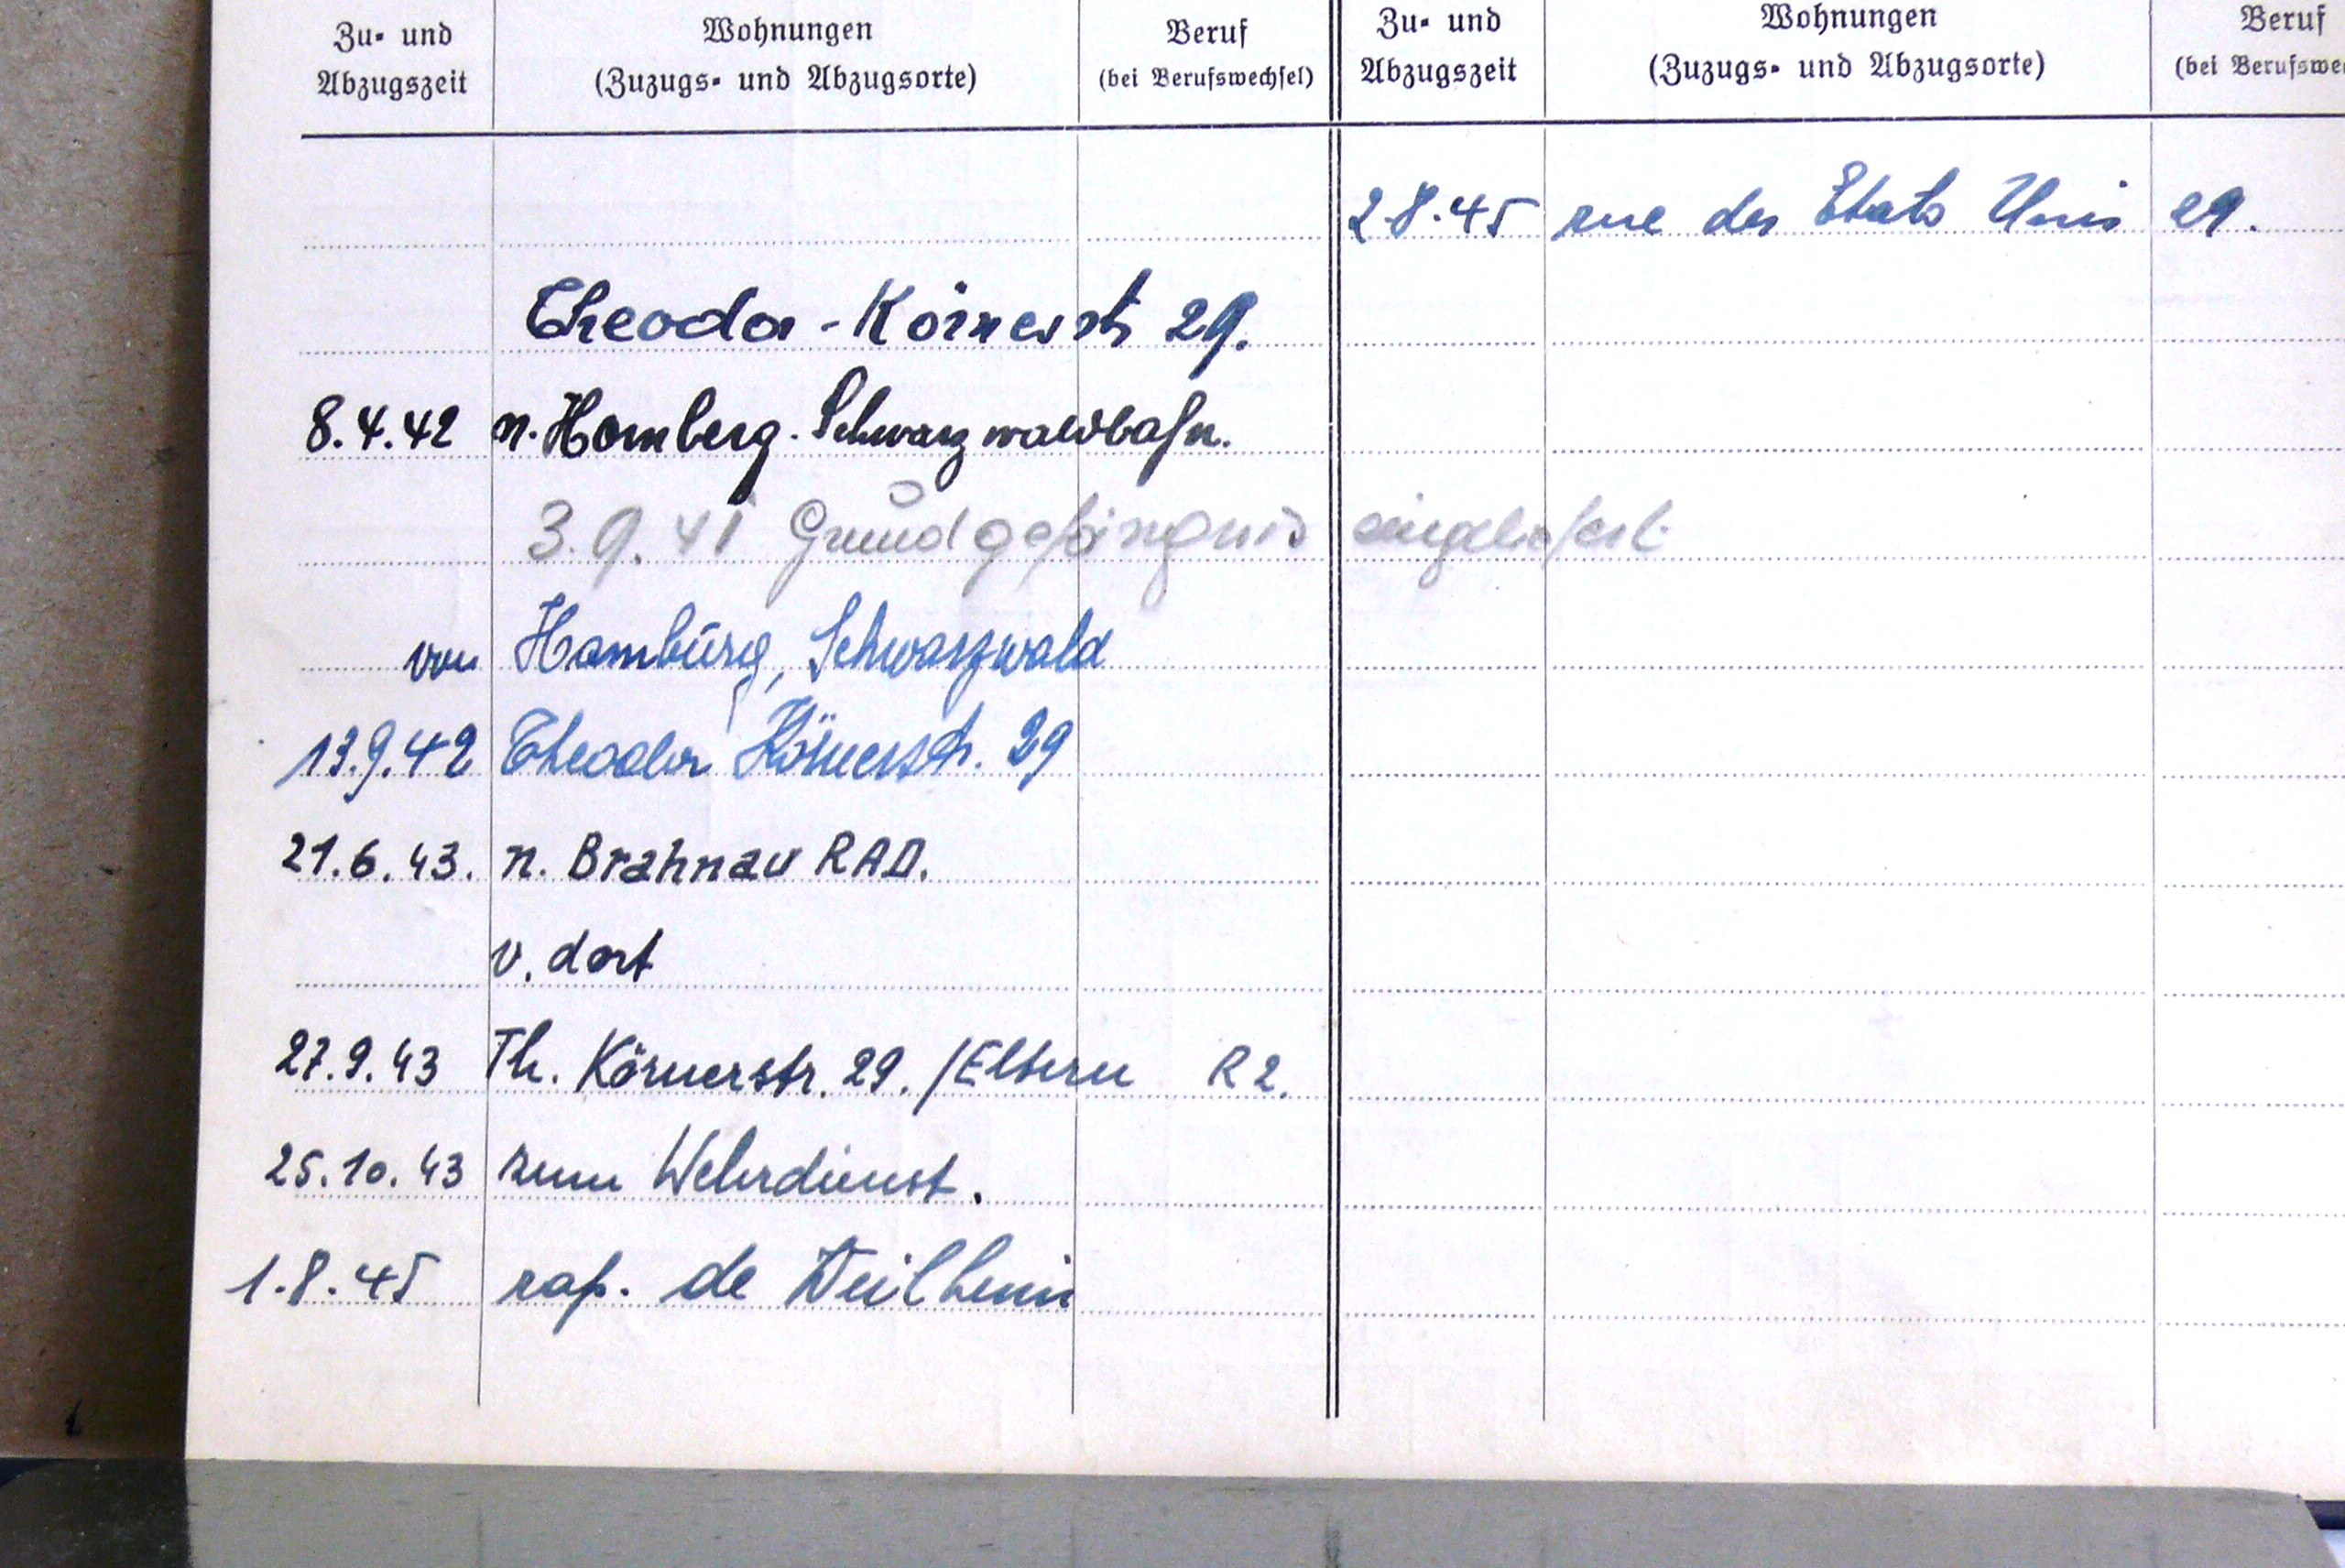 Zu- und Abzugszeit
Wohnungen (Zuzugs- und Abzugsorte)
Beruf (bei Berufswechsel)
Zu- und Abzugszeit
Wohnungen (Zuzugs- und Abzugsorte)
Beruf (bei Berufswe
Theodor-Körnerstr 29.
8.4.42 n. Homberg. Schwarzwaldbahn.
3.9.41 Grund gefängnis eingeliefert.
von Hambürg, Schwarzwald
13.9.42 Theodor Körnerstr. 29
21.6.43. n. Brahnau RAD.
v. dort
27.9.43 Th. Körnerstr. 29. /Eltern R2.
25.10.43 zum Wehrdienst.
1.8.45 rap. de Weilheim
2.8.45 rue des Etats Unis 29.